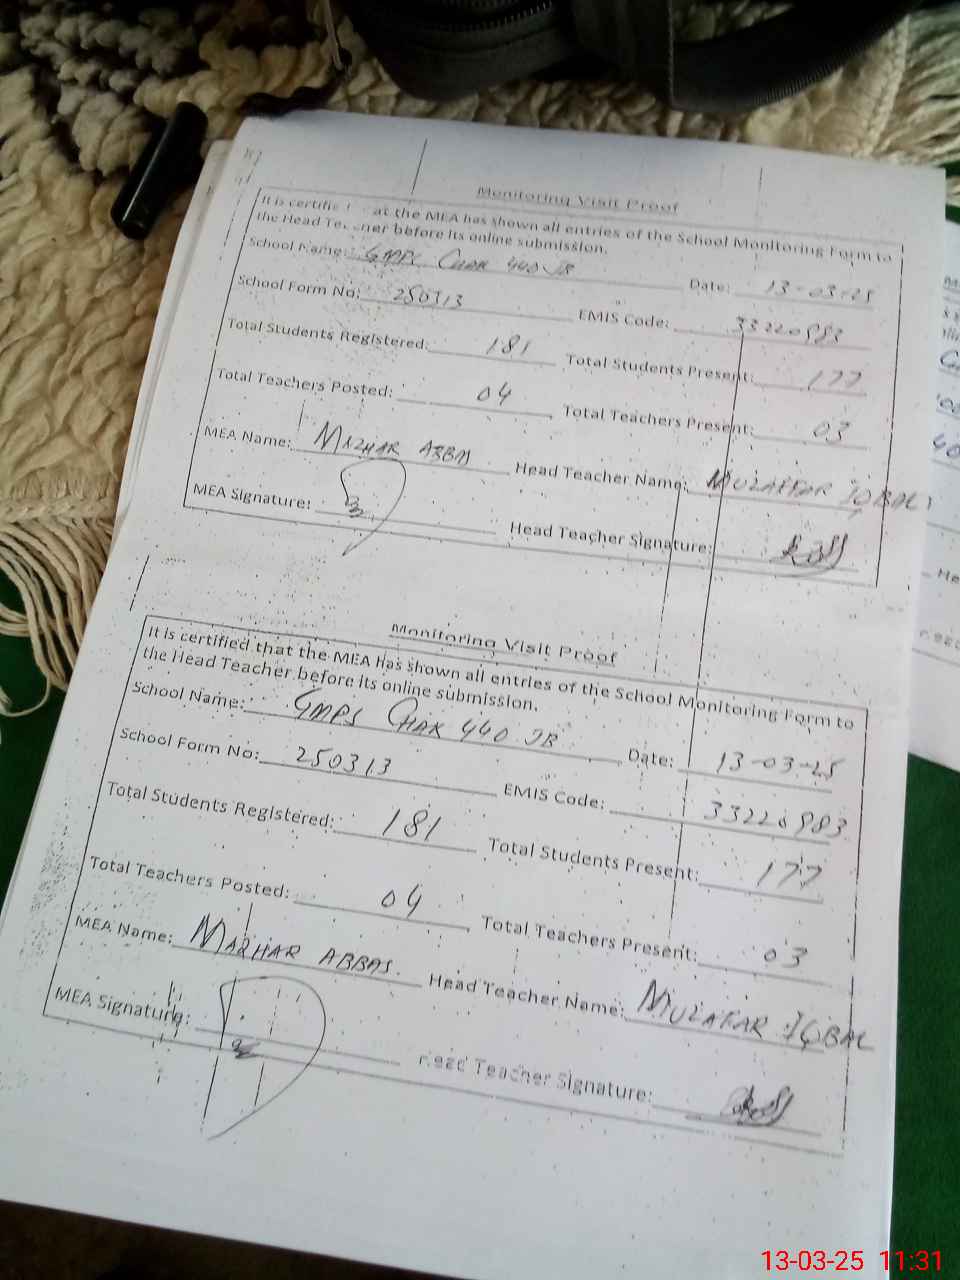 Monitoring Visit Proof
It is certifie at the MEA has shown all entries of the School Monitoring Form to
the Head Te ner before its online submission.
School Name: GMPS CHAK 440 JB Date: 13-03-25
School Form No: 250313 EMIS Code: 33220983
Total Students Registered: 181 Total Students Present: 177
Total Teachers Posted: 04 Total Teachers Present: 03
MEA Name: MAZHAR ABBAS Head Teacher Name: MUZAFFAR IQBAL
MEA Signature: Head Teacher Signature:
Monitoring Visit Proof
It is certified that the MEA has shown all entries of the School Monitoring Form to
the Head Teacher before its online submission.
School Name: GMPS CHAK 440 JB Date: 13-03-25
School Form No: 250313 EMIS Code: 33220983
Total Students Registered: 181 Total Students Present: 177
Total Teachers Posted: 04 Total Teachers Present: 03
MEA Name: MAZHAR ABBAS. Head Teacher Name: MUZAFAR IQBAL
MEA Signature: Head Teacher Signature:
13-03-25 11:31